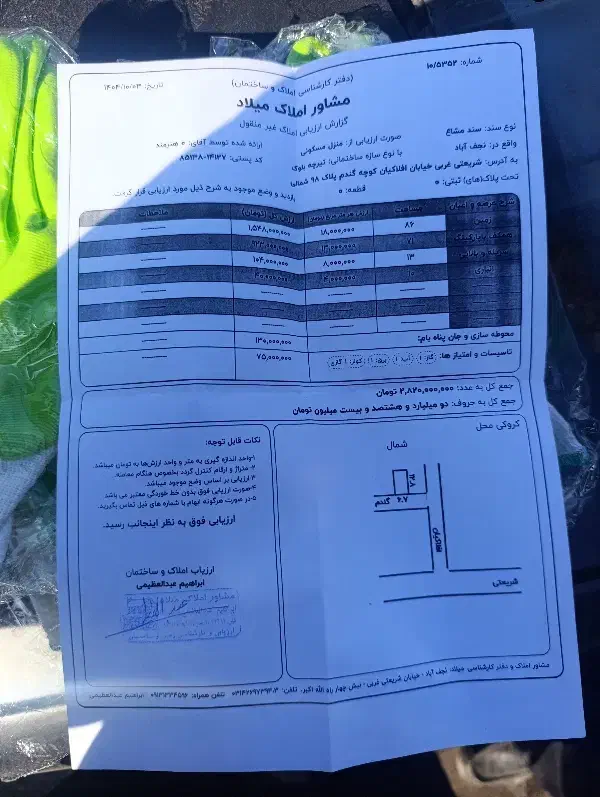 شماره: ۱۰/۵۳۵۲
(دفتر کارشناسی املاک و ساختمان)
تاریخ: ۱۴۰۴/۱۰/۰۳
مشاور املاک میلاد
گزارش ارزیابی املاک غیر منقول
نوع سند: سند مشاع
صورت ارزیابی از: منزل مسکونی
ارائه شده توسط آقای: * هنرمند
واقع در: نجف آباد
با نوع سازه ساختمانی: تیرچه بلوک
کد پستی: ۱۴۱۲۷-۸۵۱۳۸
به آدرس: شریعتی غربی خیابان افلاکیان کوچه گندم پلاک ۹۸ شمالی
تحت پلاک(های) ثبتی: * قطعه: *
بازدید و وضع موجود به شرح ذیل مورد ارزیابی قرار گرفت.
شرح عرصه و اعیان مساحت ارزش کل (تومان) ملاحظات
زمین ۸۶ ۱۸,۰۰۰,۰۰۰ ۱,۵۴۸,۰۰۰,۰۰۰
۷۱ ۱۳,۰۰۰,۰۰۰ ۹۲۳,۰۰۰,۰۰۰
۱۳ ۸,۰۰۰,۰۰۰ ۱۰۴,۰۰۰,۰۰۰
انباری ۱۰ ۴,۰۰۰,۰۰۰ ۴۰,۰۰۰,۰۰۰
محوطه سازی و جان پناه بام: ۱۳۰,۰۰۰,۰۰۰
تاسیسات و امتیاز ها: گاز: ۱ آب: ۱ برق: ۱ کولر: ۱ گازی ۷۵,۰۰۰,۰۰۰
جمع کل به عدد: ۲,۸۲۰,۰۰۰,۰۰۰ تومان
جمع کل به حروف: دو میلیارد و هشتصد و بیست میلیون تومان
کروکی محل
شمال
۱۲.۸
۶.۷
گندم
افلاکیان
شریعتی
نکات قابل توجه:
۱-واحد اندازه گیری به متر و واحد ارزش‌ها به تومان میباشد.
۲-متراژ و ارقام کنترل گردد بخصوص هنگام معامله.
۳-ارزیابی بر اساس وضع موجود میباشد
۴-صورت ارزیابی فوق بدون خط خوردگی معتبر می باشد
۵-در صورت هرگونه ابهام با شماره های ذیل تماس بگیرید.
ارزیابی فوق به نظر اینجانب رسید.
ارزیاب املاک و ساختمان
ابراهیم عبدالعظیمی
مشاور املاک میلاد
مشاور املاک و دفتر کارشناسی میلاد: نجف آباد - خیابان شریعتی غربی - نبش چهار راه الله اکبر، تلفن: ۰۳۱۴۲۶۹۷۳۹۳-۴ تلفن همراه: ۰۹۱۳۱۳۳۴۵۹۶ ابراهیم عبدالعظیمی